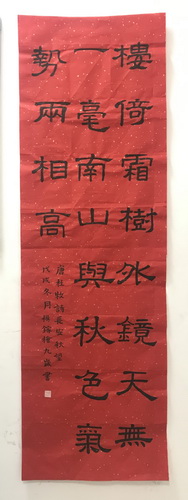 樓倚霜樹外鏡天無
一毫南山與秋色氣
勢兩相高
唐杜牧詩長安秋望
戊戌冬月書